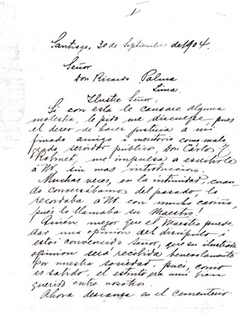 I
Santiago, 30 de Septiembre de 1904.
Señor
Don Ricardo Palma
Lima
Ilustre Señor:
Si con esta le causare alguna
molestia, le pido me disculpe, pues
el deseo de hacer justicia a un
finado amigo i meritorio como malo
grado servidor público, Don Carlos T.
Robinet, me impulsa a escribirle
a Ud. sin mas introduccion.
Muchas veces, en la intimidad, cuan
do conversábamos del pasado lo
recordaba a Ud. con mucho cariño,
pues lo llamaba su Maestro.
Quién mejor que el Maestro puede
dar una opinion del discípulo, i
estoi convencido Señor, que su ilustrada
opinion será recibida benevolamente
por nuestra sociedad, pues, como
es sabido, el estinto, era mui
querido entre nosotros.
Ahora descansa en el Cementerio